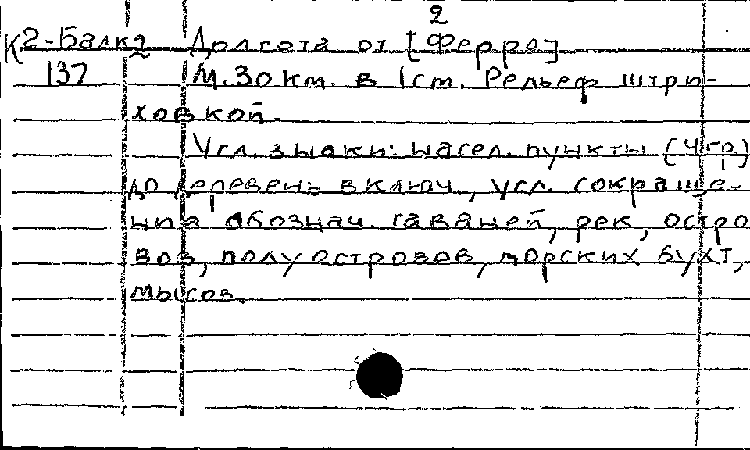 2
К 2-Балк 2 Долгота от [Ферро]
137 М. 30 км. в 1 см. Рельеф штри-
ховкой.
Усл. знаки: насел. пункты (4 гр)
до деревень включ., усл. сокраще-
ния обознач. гаваней, рек, остро
вов, полуостровов, морских бухт,
мысов.